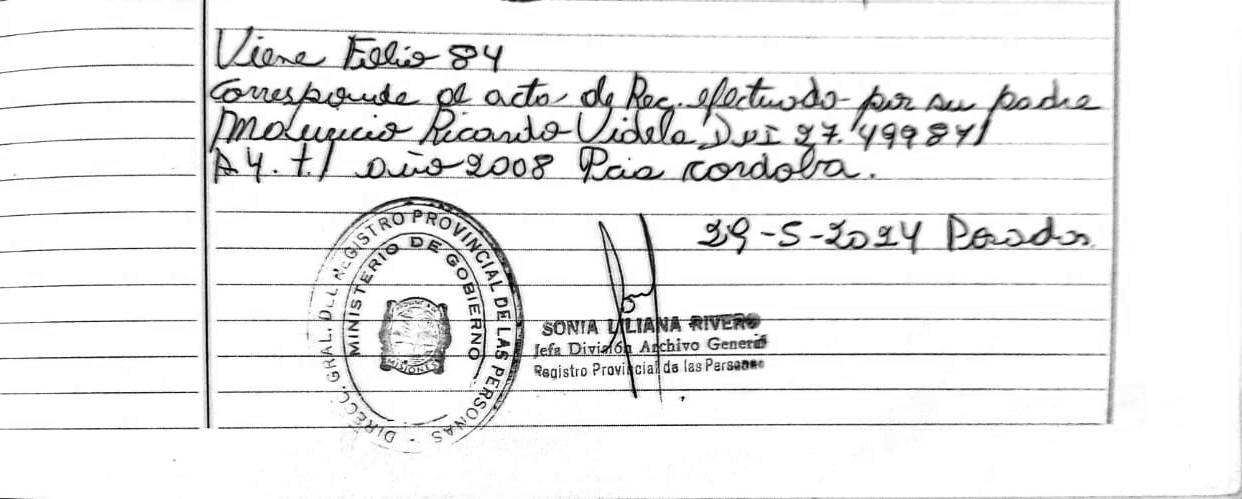 Viene Folio 84
Corresponde al acto de Rec. efectuado por su padre
Mauricio Ricardo Videla DNI 27.499871
A 4. t.1 año 2008 Pcia cordoba.
29-5-2024 Posadas
DIRECC. GRAL. DEL REGISTRO PROVINCIAL DE LAS PERSONAS
MINISTERIO DE GOBIERNO
MISIONES
SONIA LILIANA RIVERO
Jefa División Archivo General
Registro Provincial de las Personas